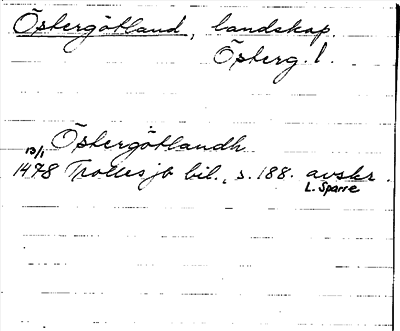 Östergötland, landskap.
Österg. l.
Östergötlandh
13/1
1478 Trollesjö bil., s. 188. avskr.
L. Sparre